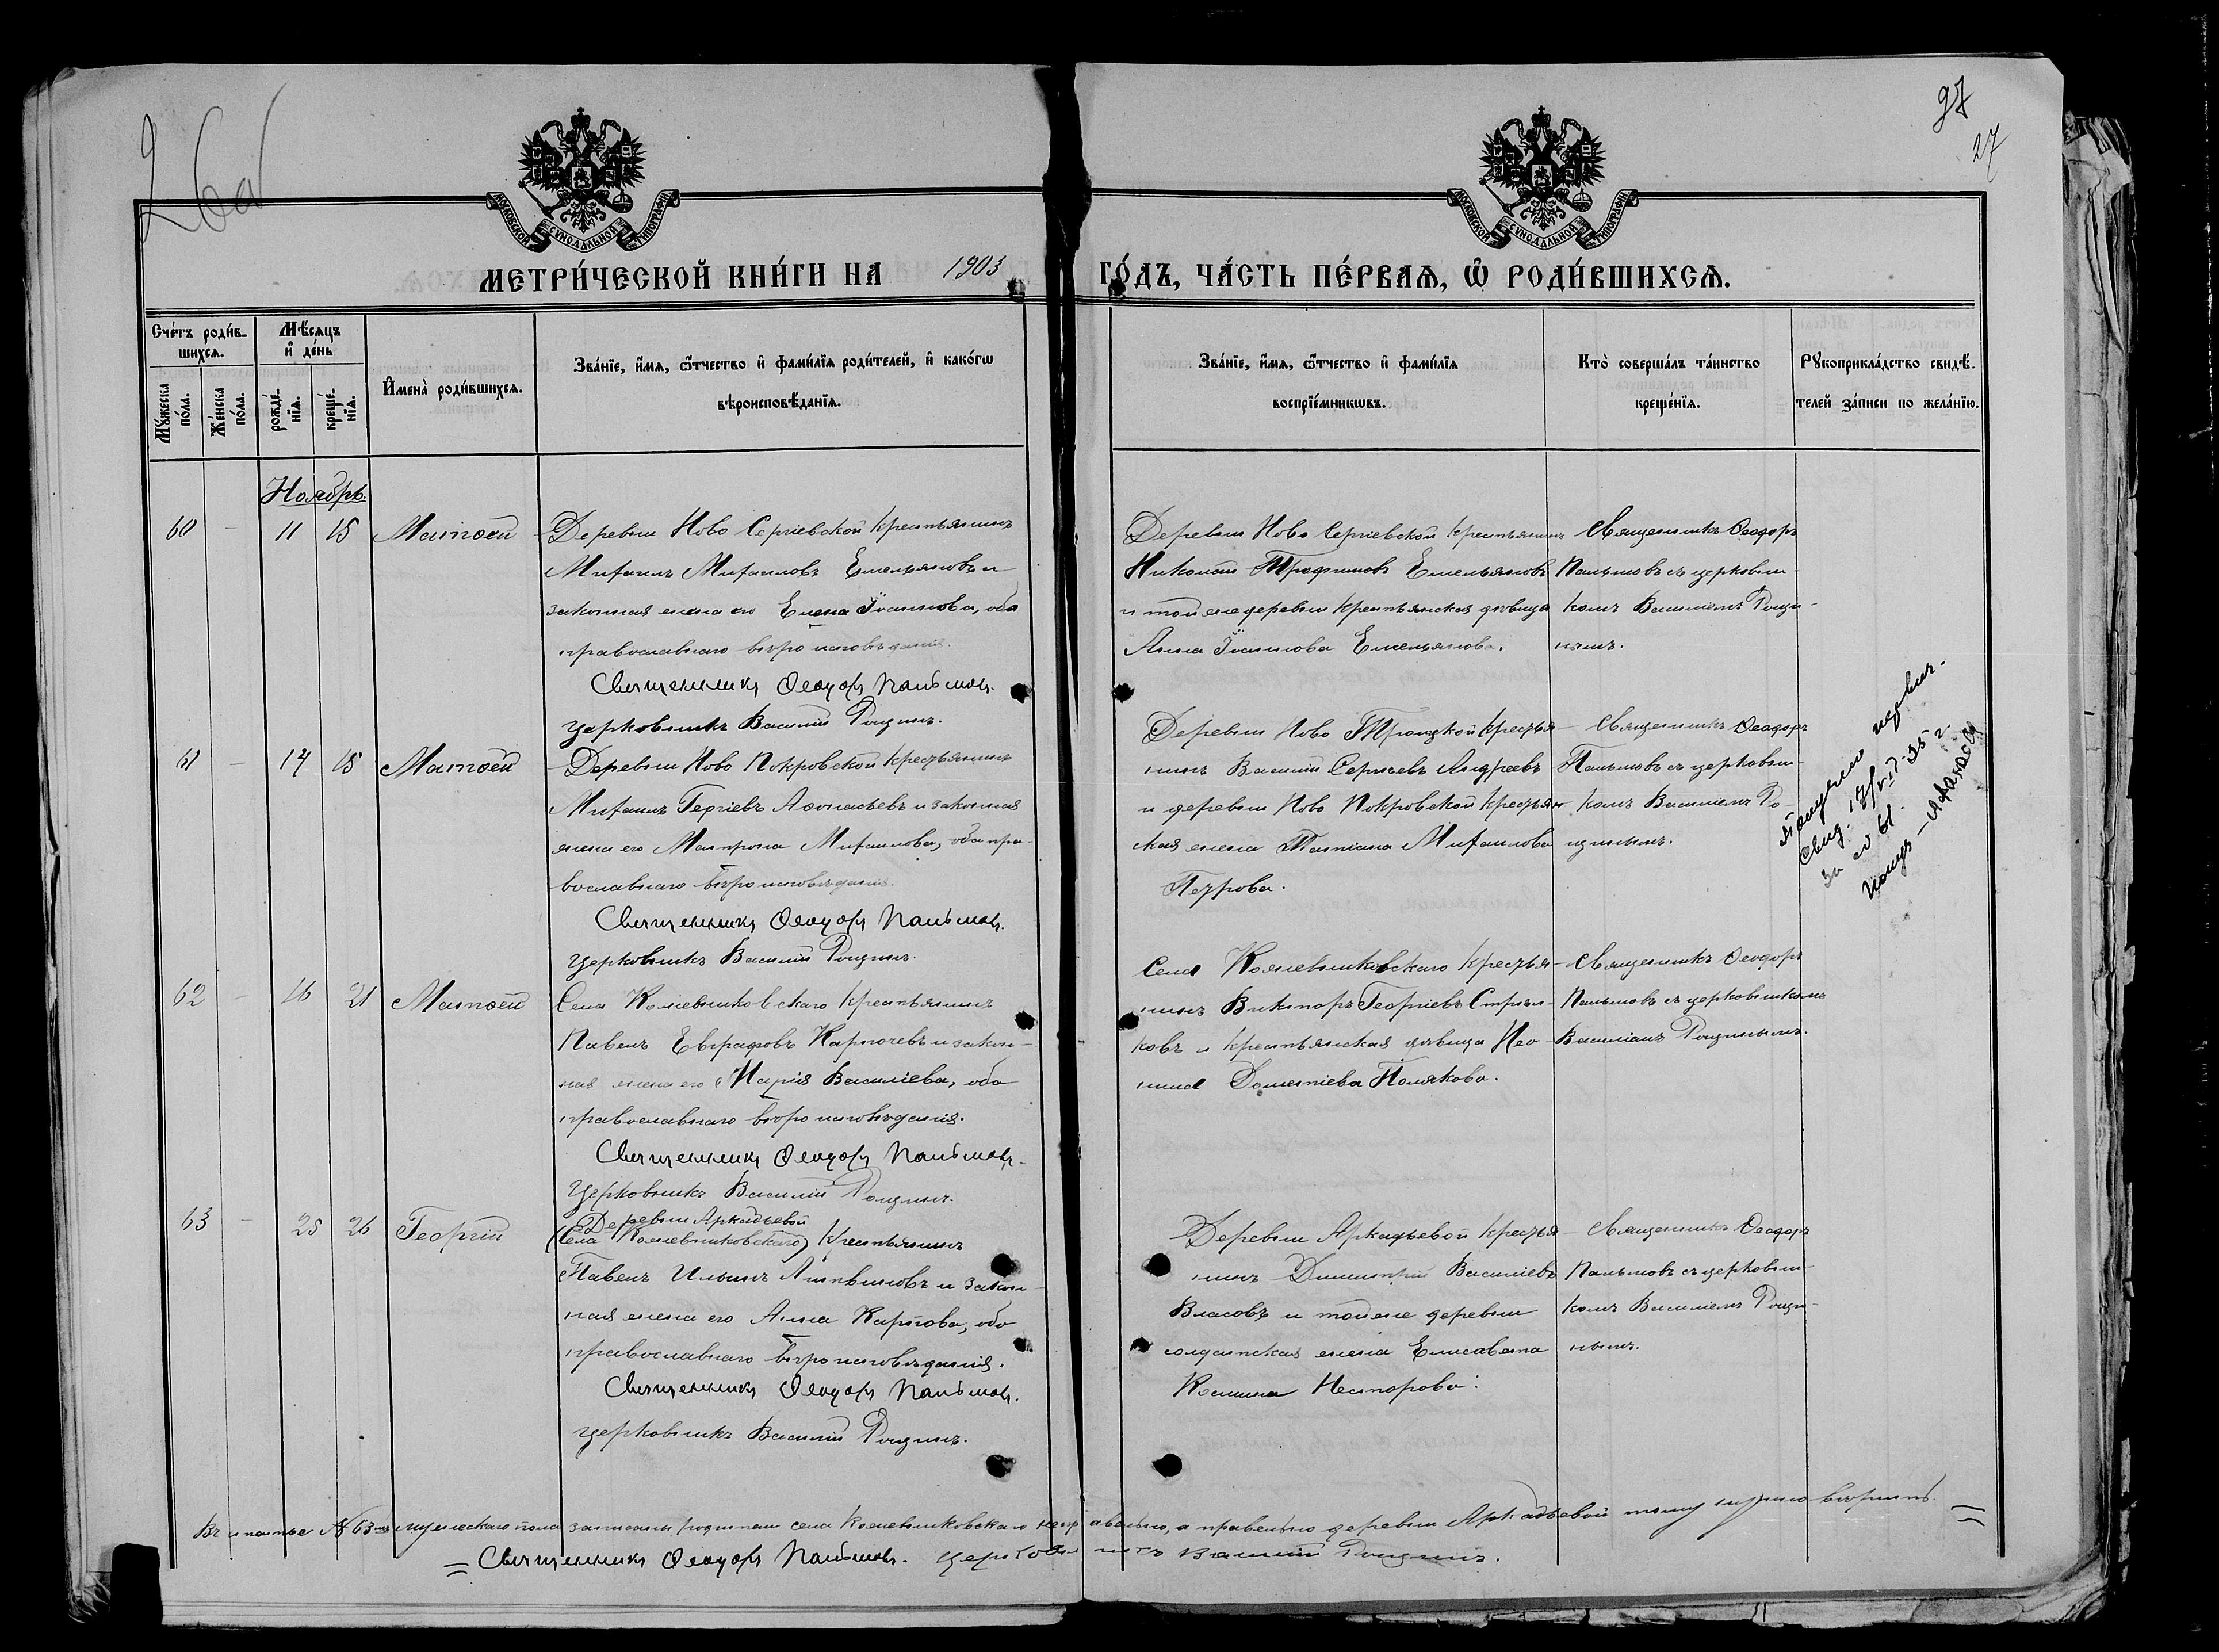 26об
97
27
МОСКОВСКОЙ СѴНОДАЛЬНОЙ ТИПОГРАФІИ
МОСКОВСКОЙ СѴНОДАЛЬНОЙ ТИПОГРАФІИ
МЕТРИ́ЧЕСКОЙ КНИ́ГИ НА 1903 ГО́ДЪ, ЧА́СТЬ ПЕ́РВАѦ, Ѡ҆ РОДИ́ВШИХСѦ.
Сче́тъ роди́в-
шихсѧ.
Мꙋ́жеска по́ла.
Же́нска по́ла.
Мѣ́сѧцъ
и҆ де́нь
рожде́-
нїѧ.
креще́-
нїѧ.
И҆мена̀ роди́вшихсѧ.
Зва́нїе, и҆́мѧ, ѻ҆́тчество и҆ фами́лїѧ роди́телей, и҆ како́гѡ
вѣроисповѣ́данїѧ.
Зва́нїе, и҆́мѧ, ѻ҆́тчество и҆ фами́лїѧ
воспрїе́мникѡвъ.
Кто̀ соверша́лъ та́инство
креще́нїѧ.
Рꙋкоприкла́дство свидѣ́-
телей за́писи по жела́нїю.
Ноябрь.
60 - 11 15 Матѳей
Деревни Ново Сергіевской крестьянинъ
Михаилъ Михаиловъ Емельяновъ и
законная жена его Елена Іоаннова, оба
православнаго вѣроисповѣданія.
Священникъ Ѳеодоръ Пальмовъ.
Церковникъ Василій Рощинъ.
Деревни Ново Сергіевской крестьянинъ
Николай Трофимовъ Емельяновъ
и той же деревни крестьянская дѣвица
Анна Іоаннова Емельянова.
Священникъ Ѳеодоръ
Пальмовъ съ церковни-
комъ Василіемъ Рощи-
нымъ.
61 - 14 15 Матѳей
Деревни Ново Покровской крестьянинъ
Михаилъ Георгіевъ Аѳонасьевъ и законная
жена его Матрона Михаилова, оба пра-
вославнаго вѣроисповѣданія.
Священникъ Ѳеодоръ Пальмовъ.
Церковникъ Василій Рощинъ.
Деревни Ново Троицкой крестья-
нинъ Василій Сергіевъ Андреевъ
и деревни Ново Покровской крестьян-
ская жена Татіана Михаилова
Петрова.
Священникъ Ѳеодоръ
Пальмовъ съ церковни-
комъ Василіемъ Ро-
щинымъ.
за № 61.
62 - 16 21 Матѳей
Села Кожевниковскаго крестьянинъ
Павелъ Евграфовъ Карпочевъ и закон-
ная жена его Марія Василіева, оба
православнаго вѣроисповѣданія.
Священникъ Ѳеодоръ Пальмовъ.
Церковникъ Василій Рощинъ.
Села Кожевниковскаго крестья-
нинъ Викторъ Георгіевъ Стрѣл-
ковъ и крестьянская дѣвица Не-
Дометіева Полякова.
Священникъ Ѳеодоръ
Пальмовъ съ церковникомъ
Василіемъ Рощинымъ.
63 - 25 26 Георгій
Деревни Аркадьевой
(Села Кожевниковскаго) крестьянинъ
Павелъ Ильинъ и закон-
ная жена его Анна Карпова, оба
православнаго вѣроисповѣданія.
Священникъ Ѳеодоръ Пальмовъ.
Церковникъ Василій Рощинъ.
Деревни Аркадьевой крестья-
нинъ Димитрій Василіевъ
Власовъ и той же деревни
солдатская жена Елисавета
Косьмина Несторова.
Священникъ Ѳеодоръ
Пальмовъ съ церковни-
комъ Василіемъ Рощи-
нымъ.
Въ статьѣ № 63 мужескаго пола записаны родители села Кожевниковскаго неправильно, а правильно деревни Аркадьевой тому нужно вѣрить. =
= Священникъ Ѳеодоръ Пальмовъ. Церковникъ Василій Рощинъ.